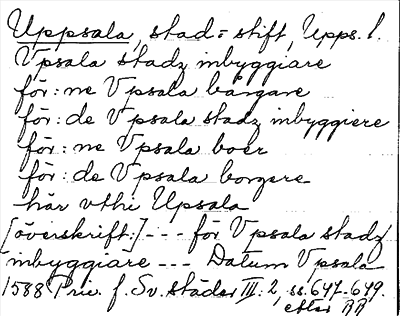 Uppsala, stad = stift, Upps. l.
Vpsala stadz inbyggiare
för: ne Vpsala bårgare
för: de Vpsala stadz inbyggiere
för: ne Vpsala boer
för: de Vpsala borgere
här vthi Upsala
[överskrift:] --- för Vpsala stadz
inbyggiare --- Datum Vpsala
1588 Priv. f. Sv. städer III: 2, ss. 647-649.
efter RR